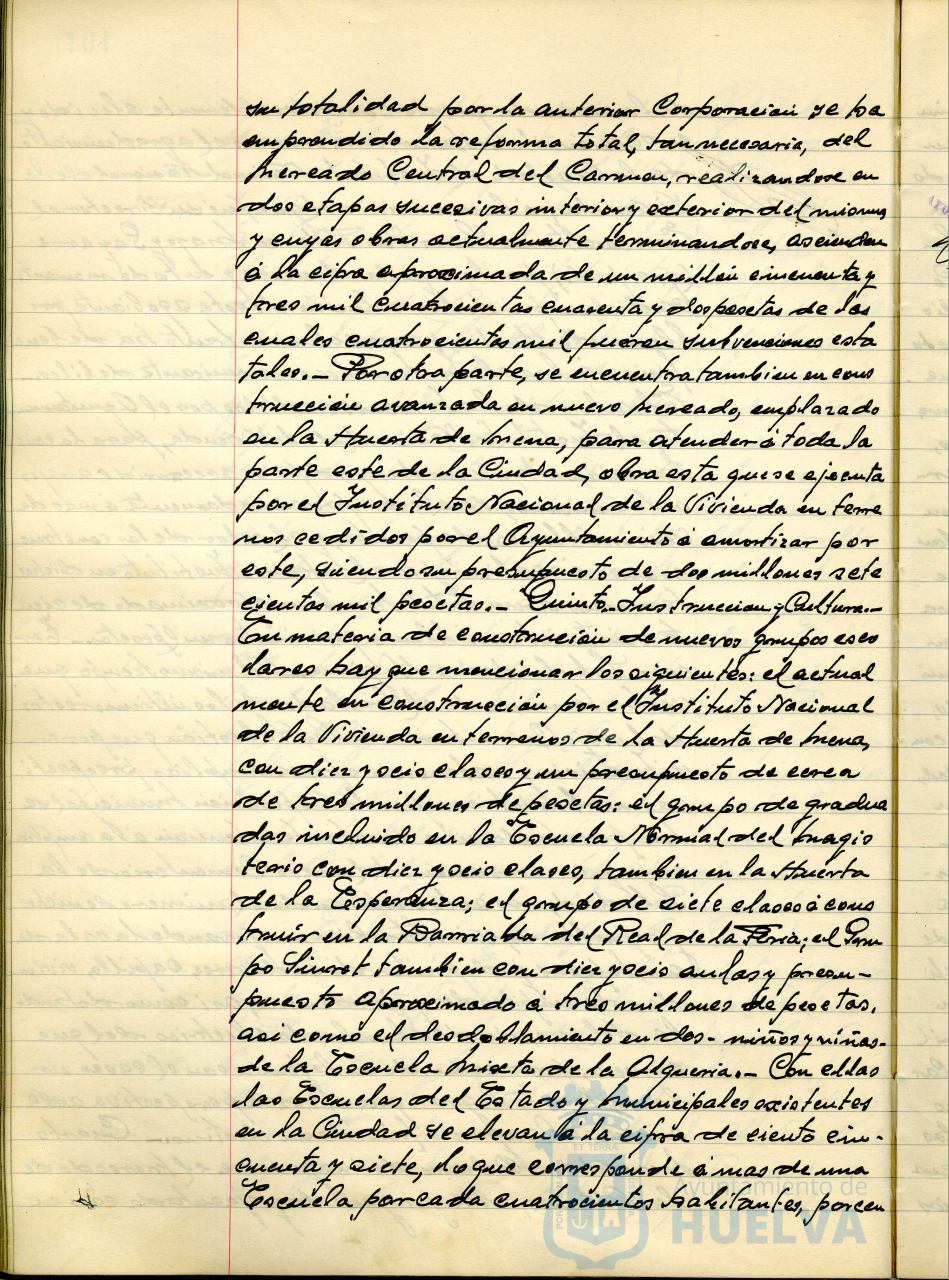 su totalidad por la anterior Corporación se ha
emprendido la reforma total, tan necesaria, del
Mercado Central del Carmen, realizandose en
dos etapas sucesivas interior y exterior del mismo
y cuyas obras actualmente terminandose, ascienden
á la cifra aproximada de un millón cincuenta y
tres mil cuatrocientas cuarenta y dos pesetas de las
cuales cuatrocientas mil fueron subvenciones esta
tales.- Por otra parte, se encuentra tambien en cons
trucción avanzada un nuevo Mercado, emplazado
en la Huerta de Mena, para atender á toda la
parte este de la Ciudad, obra esta que se ejecuta
por el Instituto Nacional de la Vivienda en terre
nos cedidos por el Ayuntamiento á amortizar por
este, siendo su presupuesto de dos millones sete
cientas mil pesetas.- Quinto.- Instruccion y Cultura.-
En materia de construcción de nuevos grupos esco
lares hay que mencionar los siguientes: el actual
mente en construcción por el Instituto Nacional
de la Vivienda en terrenos de la Huerta de Mena,
con diez y ocio clases y un presupuesto de cerca
de tres millones de pesetas: el grupo de gradua
das incluido en la Escuela Normal del Magis
terio con diez y ocio clases, tambien en la Huerta
de la Esperanza; el grupo de siete clases á cons
truir en la Barriada del Real de la Feria; el Gru
po Siurot tambien con diez y ocio aulas y presu-
puesto aproximado á tres millones de pesetas,
asi como el desdoblamiento en dos- niños y niñas-
de la Escuela Mixta de la Alqueria.- Con ellas
las Escuelas del Estado y Municipales existentes
en la Ciudad se elevan á la cifra de ciento cin-
cuenta y siete, lo que corresponde á mas de una
Escuela por cada cuatrocientos habitantes, porcen
Ayuntamiento de
HUELVA